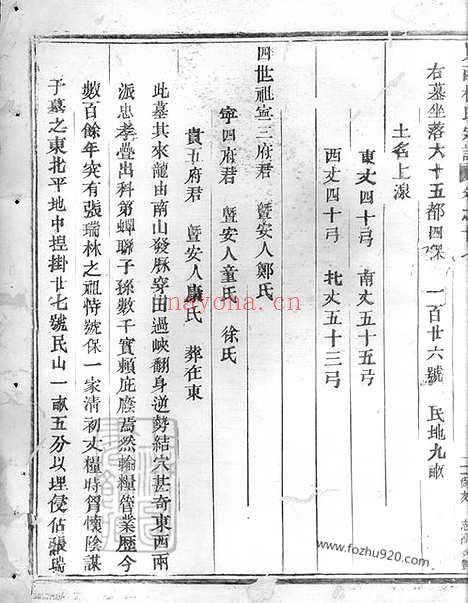 右墓坐落大十五都四保　一百廿六號　民地九畝
土名上溪
東丈四十弓　南丈五十五弓
西丈四十弓　北丈五十三弓
四世祖寧三府君　曁安人鄭氏
寧四府君　曁安人童氏　徐氏
貴五府君　曁安人康氏　葬在東
此墓其來龍由南山發脉穿田過峽翻身逆勢結穴甚奇東西兩
派忠孝疊出科第蟬聯子孫數千實賴庇廕焉然輸糧管業歷今
數百餘年突有張瑞林之祖恃號保一家清初丈糧時胥懷陰謀
于墓之東北平地中捏掛廿七號民山一畝五分以埋侵佔張瑞
nayona.cn
www.fozhu920.com